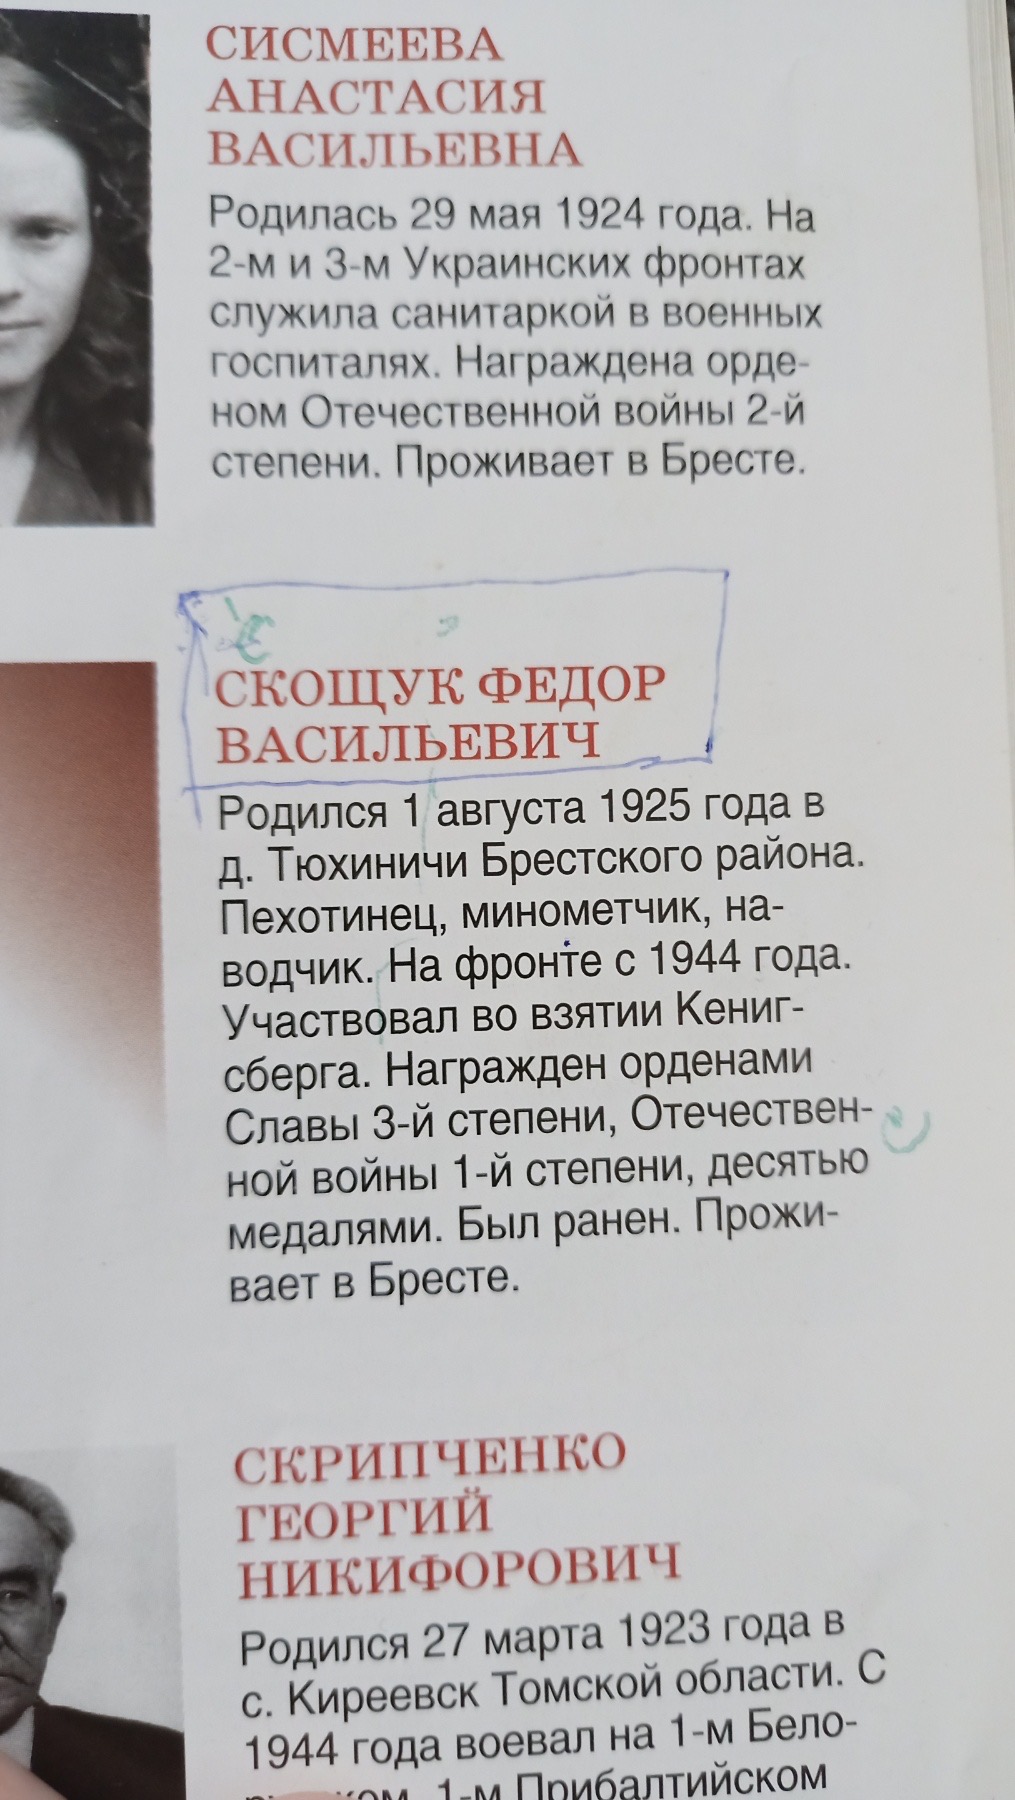 СИСМЕЕВА
АНАСТАСИЯ
ВАСИЛЬЕВНА
Родилась 29 мая 1924 года. На
2-м и 3-м Украинских фронтах
служила санитаркой в военных
госпиталях. Награждена орде-
ном Отечественной войны 2-й
степени. Проживает в Бресте.
СКОЩУК ФЕДОР
ВАСИЛЬЕВИЧ
Родился 1 августа 1925 года в
д. Тюхиничи Брестского района.
Пехотинец, минометчик, на-
водчик. На фронте с 1944 года.
Участвовал во взятии Кениг-
сберга. Награжден орденами
Славы 3-й степени, Отечествен-
ной войны 1-й степени, десятью
медалями. Был ранен. Прожи-
вает в Бресте.
СКРИПЧЕНКО
ГЕОРГИЙ
НИКИФОРОВИЧ
Родился 27 марта 1923 года в
с. Киреевск Томской области. С
1944 года воевал на 1-м Бело-
1-м Прибалтийском